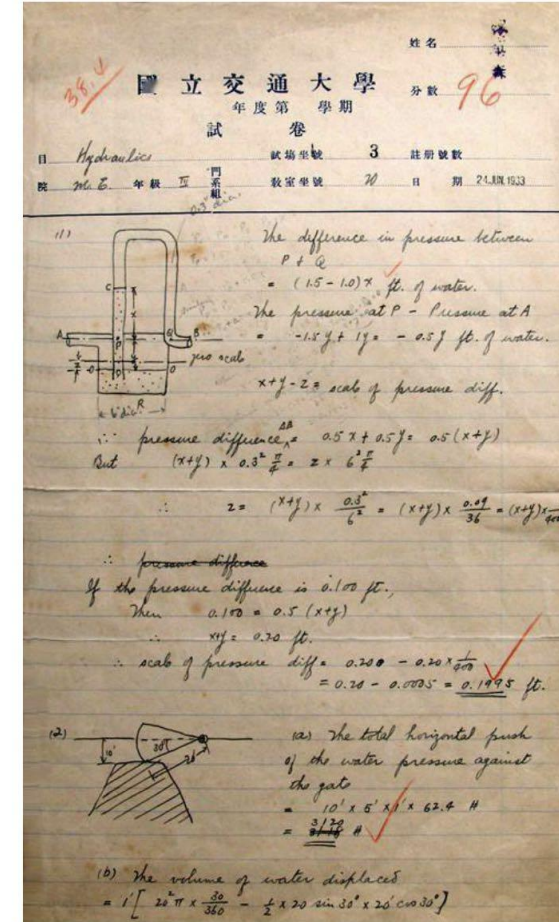 姓名
38.4
國立交通大學
分數 96
年度第 學期
試 卷
目 Hydraulics 試場坐號 3 註册號數
院 M.E. 年級 IV 門系組 教室坐號 70 日 期 24 JUN 1933
0.3" dia.
(1) The difference in pressure between
P & Q
= (1.5 - 1.0)x ft. of water.
The pressure at P - Pressure at A
= -1.5y + 1y = - 0.5y ft. of water.
x+y-z = scale of pressure diff.
C
x
A
P
Q
B
y
z
zero scale
O
O
R
6" dia.
∴ pressure difference AB = 0.5x + 0.5y = 0.5(x+y)
But (x+y) × 0.3² π/4 = z × 6² π/4
∴ z = (x+y) × 0.3²/6² = (x+y) × 0.09/36 = (x+y) × 1/400
∴ pressure difference
If the pressure difference is 0.100 ft.,
Then 0.100 = 0.5 (x+y)
∴ x+y = 0.20 ft.
∴ scale of pressure diff = 0.200 - 0.20 × 1/400
= 0.20 - 0.0005 = 0.1995 ft.
(2) (a) The total horizontal push
of the water pressure against
the gate
= 10' × 5' × 1' × 62.4 #
= 3120 #
10'
30°
20'
(b) The volume of water displaced
= 1' [ 20² π × 30/360 - 1/2 × 20 sin 30° × 20' cos 30° ]